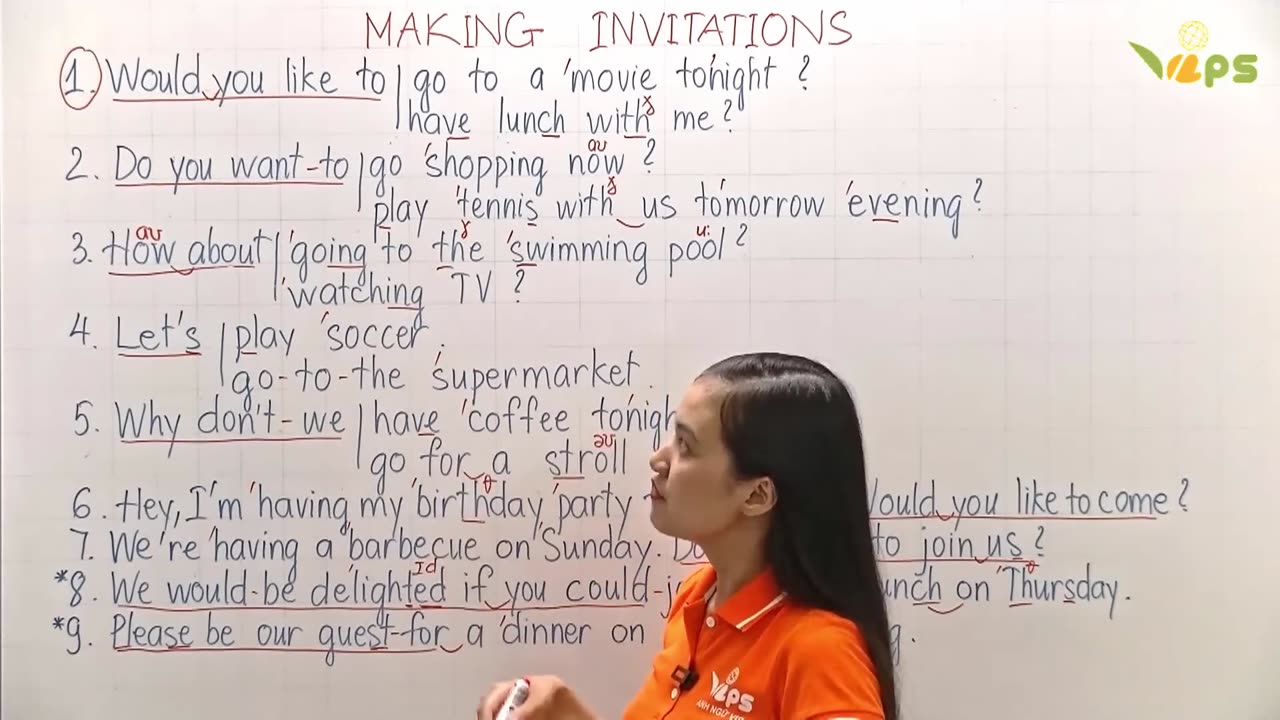 MAKING INVITATIONS
VILPS
1. Would you like to | go to a 'movie to'night ?
have lunch with me ?
ð
2. Do you want-to | go 'shopping now ?
aʊ
play 'tennis with us to'morrow 'evening ?
ð
3. How about | 'going to the 'swimming pool ?
aʊ ð u:
'watching TV ?
4. Let's | play 'soccer.
go-to-the 'supermarket.
5. Why don't-we | have 'coffee
go for a stroll
əʊ
6. Hey, I'm 'having my 'birthday 'party ould you like to come ?
θ
7. We're 'having a 'barbecue on 'Sunday. to join us ?
*8. We would-be de'lighted if you could- on 'Thursday.
Id θ
*9. Please be our guest-for a 'dinner on
VILPS
ANH NGỮ